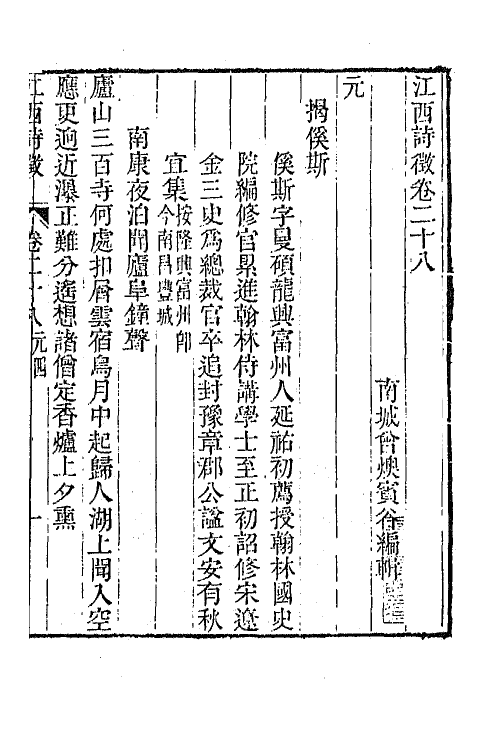 江西詩徵卷二十八
南城曾燠賓谷編輯
元
揭傒斯
傒斯字曼碩龍興富州人延祐初薦授翰林國史
院編修官累進翰林侍講學士至正初詔修宋遼
金三史爲總裁官卒追封豫章郡公諡文安有秋
宜集按隆興富州卽今南昌豐城
南康夜泊聞廬阜鐘聲
廬山三百寺何處扣層雲宿鳥月中起歸人湖上聞入空
應更逈近瀑正難分遙想諸僧定香爐上夕熏
江西詩徵 卷二十八 元四 一